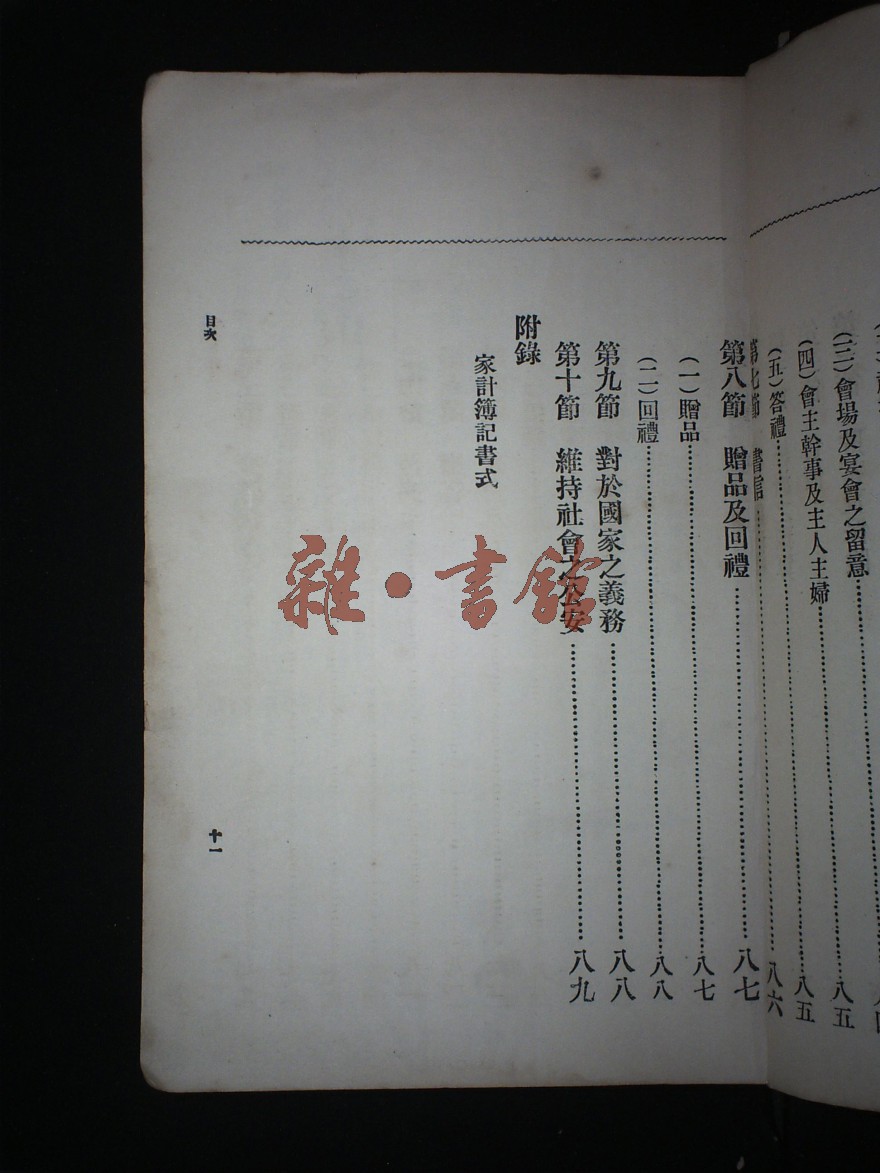 (三)會場及宴會之留意……八四
(四)會主幹事及主人主婦……八五
(五)答禮……八五
第七節 書信……八六
第八節 贈品及回禮……八七
(一)贈品……八七
(二)回禮……八八
第九節 對於國家之義務……八八
第十節 維持社會之公安……八九
附錄
家計簿記書式
目次
十一
雜·書館